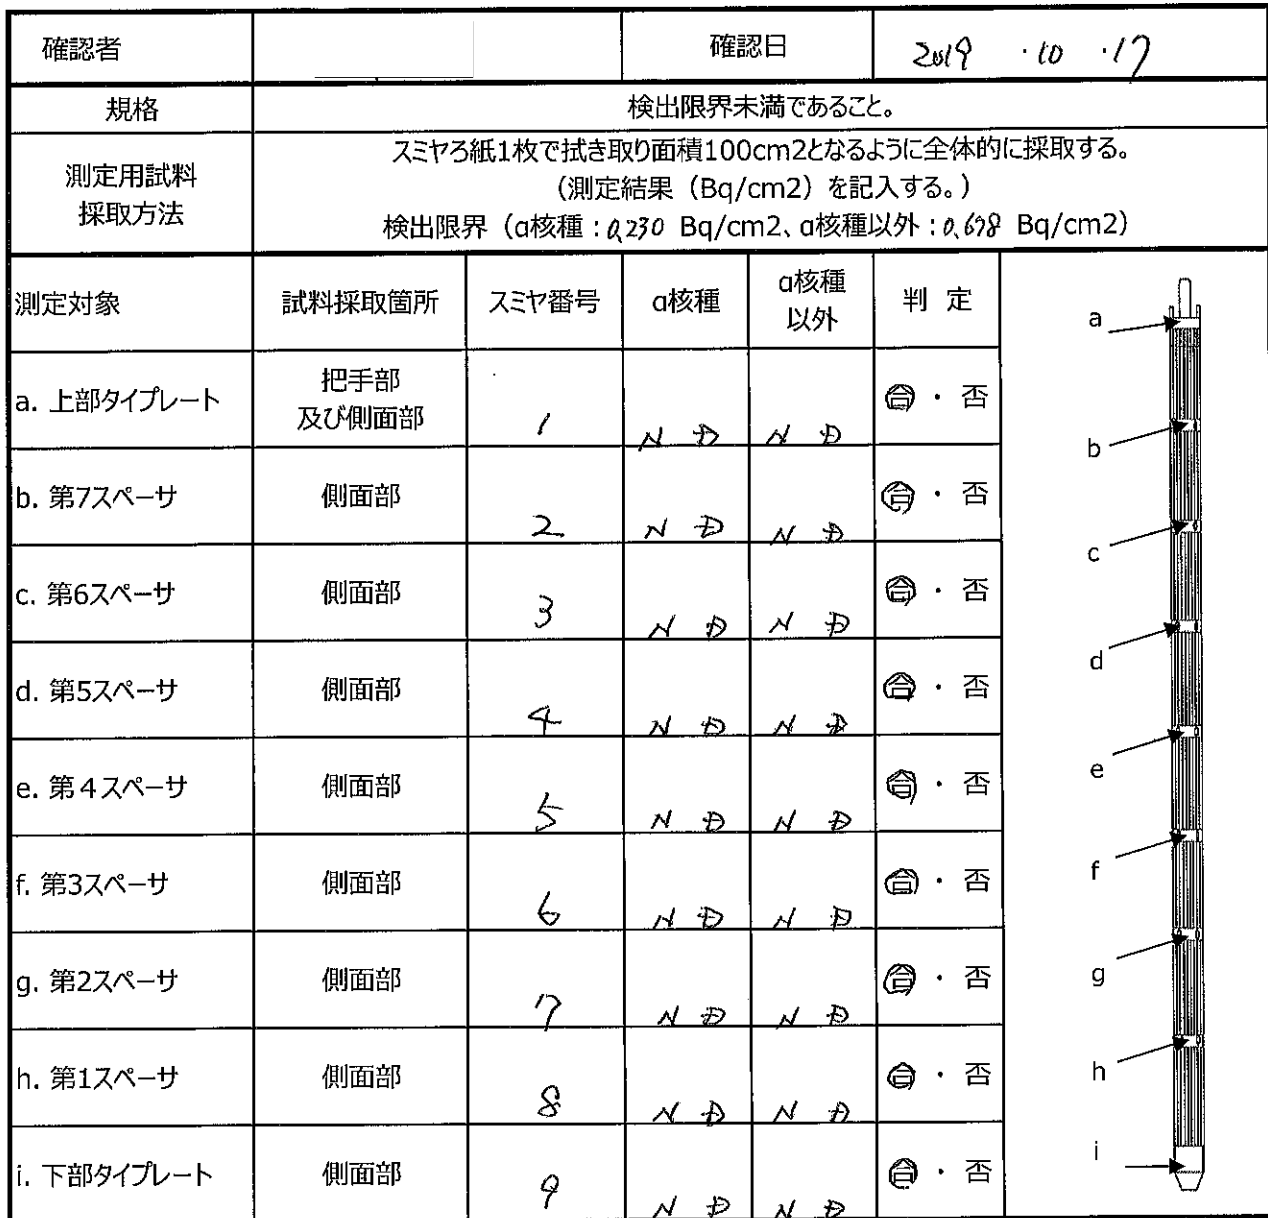 確認者 確認日 2019 ・10 ・17
規格 検出限界未満であること。
測定用試料
採取方法
スミヤろ紙1枚で拭き取り面積100cm2となるように全体的に採取する。
(測定結果(Bq/cm2)を記入する。)
検出限界(α核種:0.230 Bq/cm2、α核種以外:0.678 Bq/cm2)
測定対象 試料採取箇所 スミヤ番号 α核種 α核種以外 判 定
a. 上部タイプレート 把手部及び側面部 1 N D N D 合 ・ 否
b. 第7スペーサ 側面部 2 N D N D 合 ・ 否
c. 第6スペーサ 側面部 3 N D N D 合 ・ 否
d. 第5スペーサ 側面部 4 N D N D 合 ・ 否
e. 第4スペーサ 側面部 5 N D N D 合 ・ 否
f. 第3スペーサ 側面部 6 N D N D 合 ・ 否
g. 第2スペーサ 側面部 7 N D N D 合 ・ 否
h. 第1スペーサ 側面部 8 N D N D 合 ・ 否
i. 下部タイプレート 側面部 9 N D N D 合 ・ 否
a
b
c
d
e
f
g
h
i